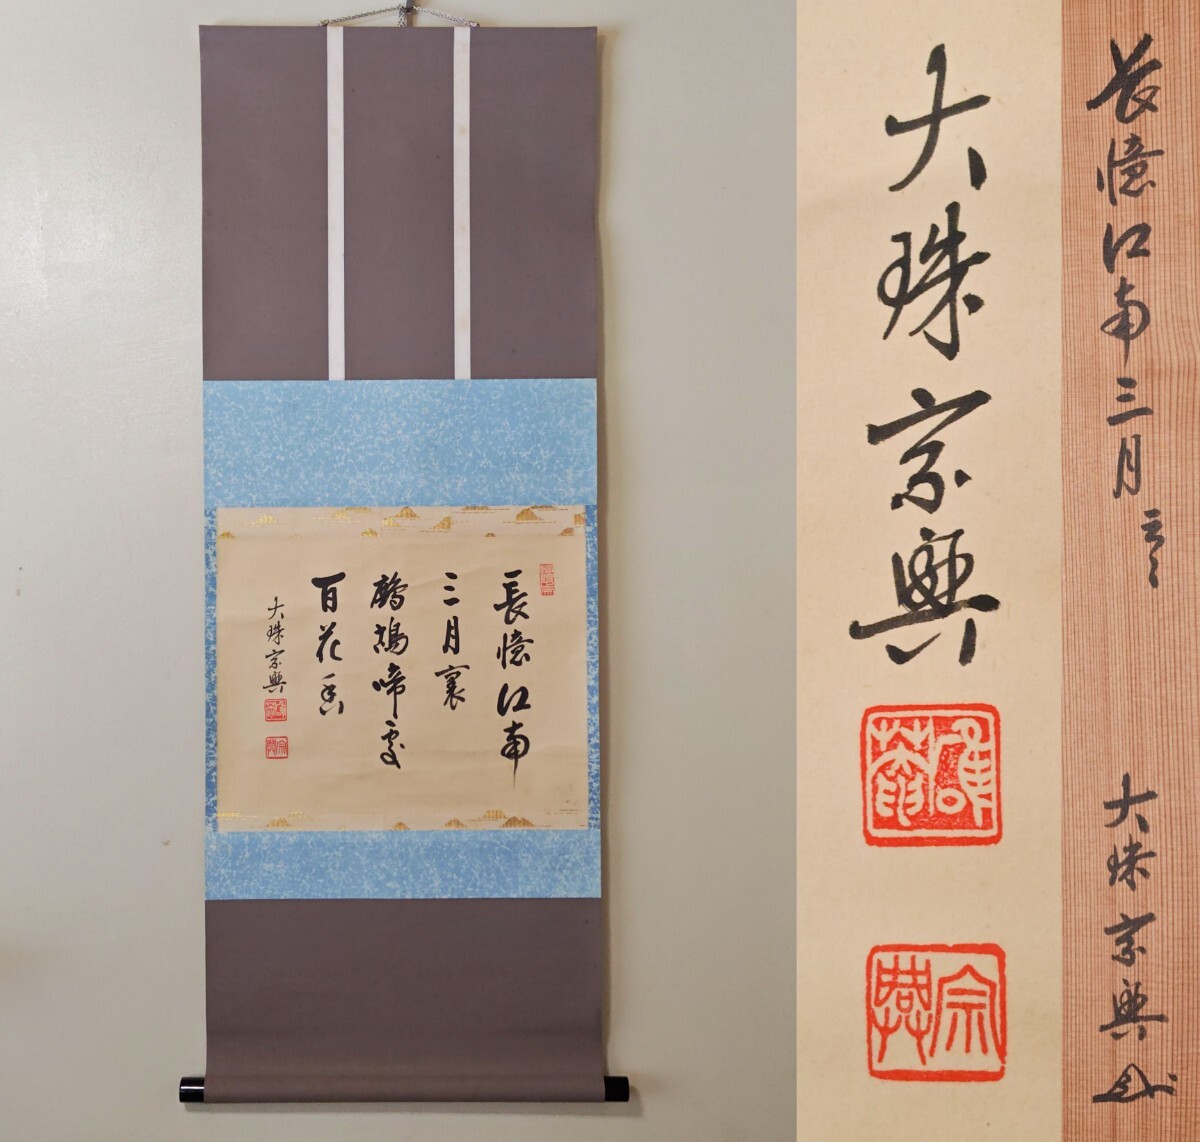 長憶江南
三月裏
鷓鴣啼處
百花香
大珠宗興
大珠宗興
宗興
長憶江南三月 云々
大珠宗興